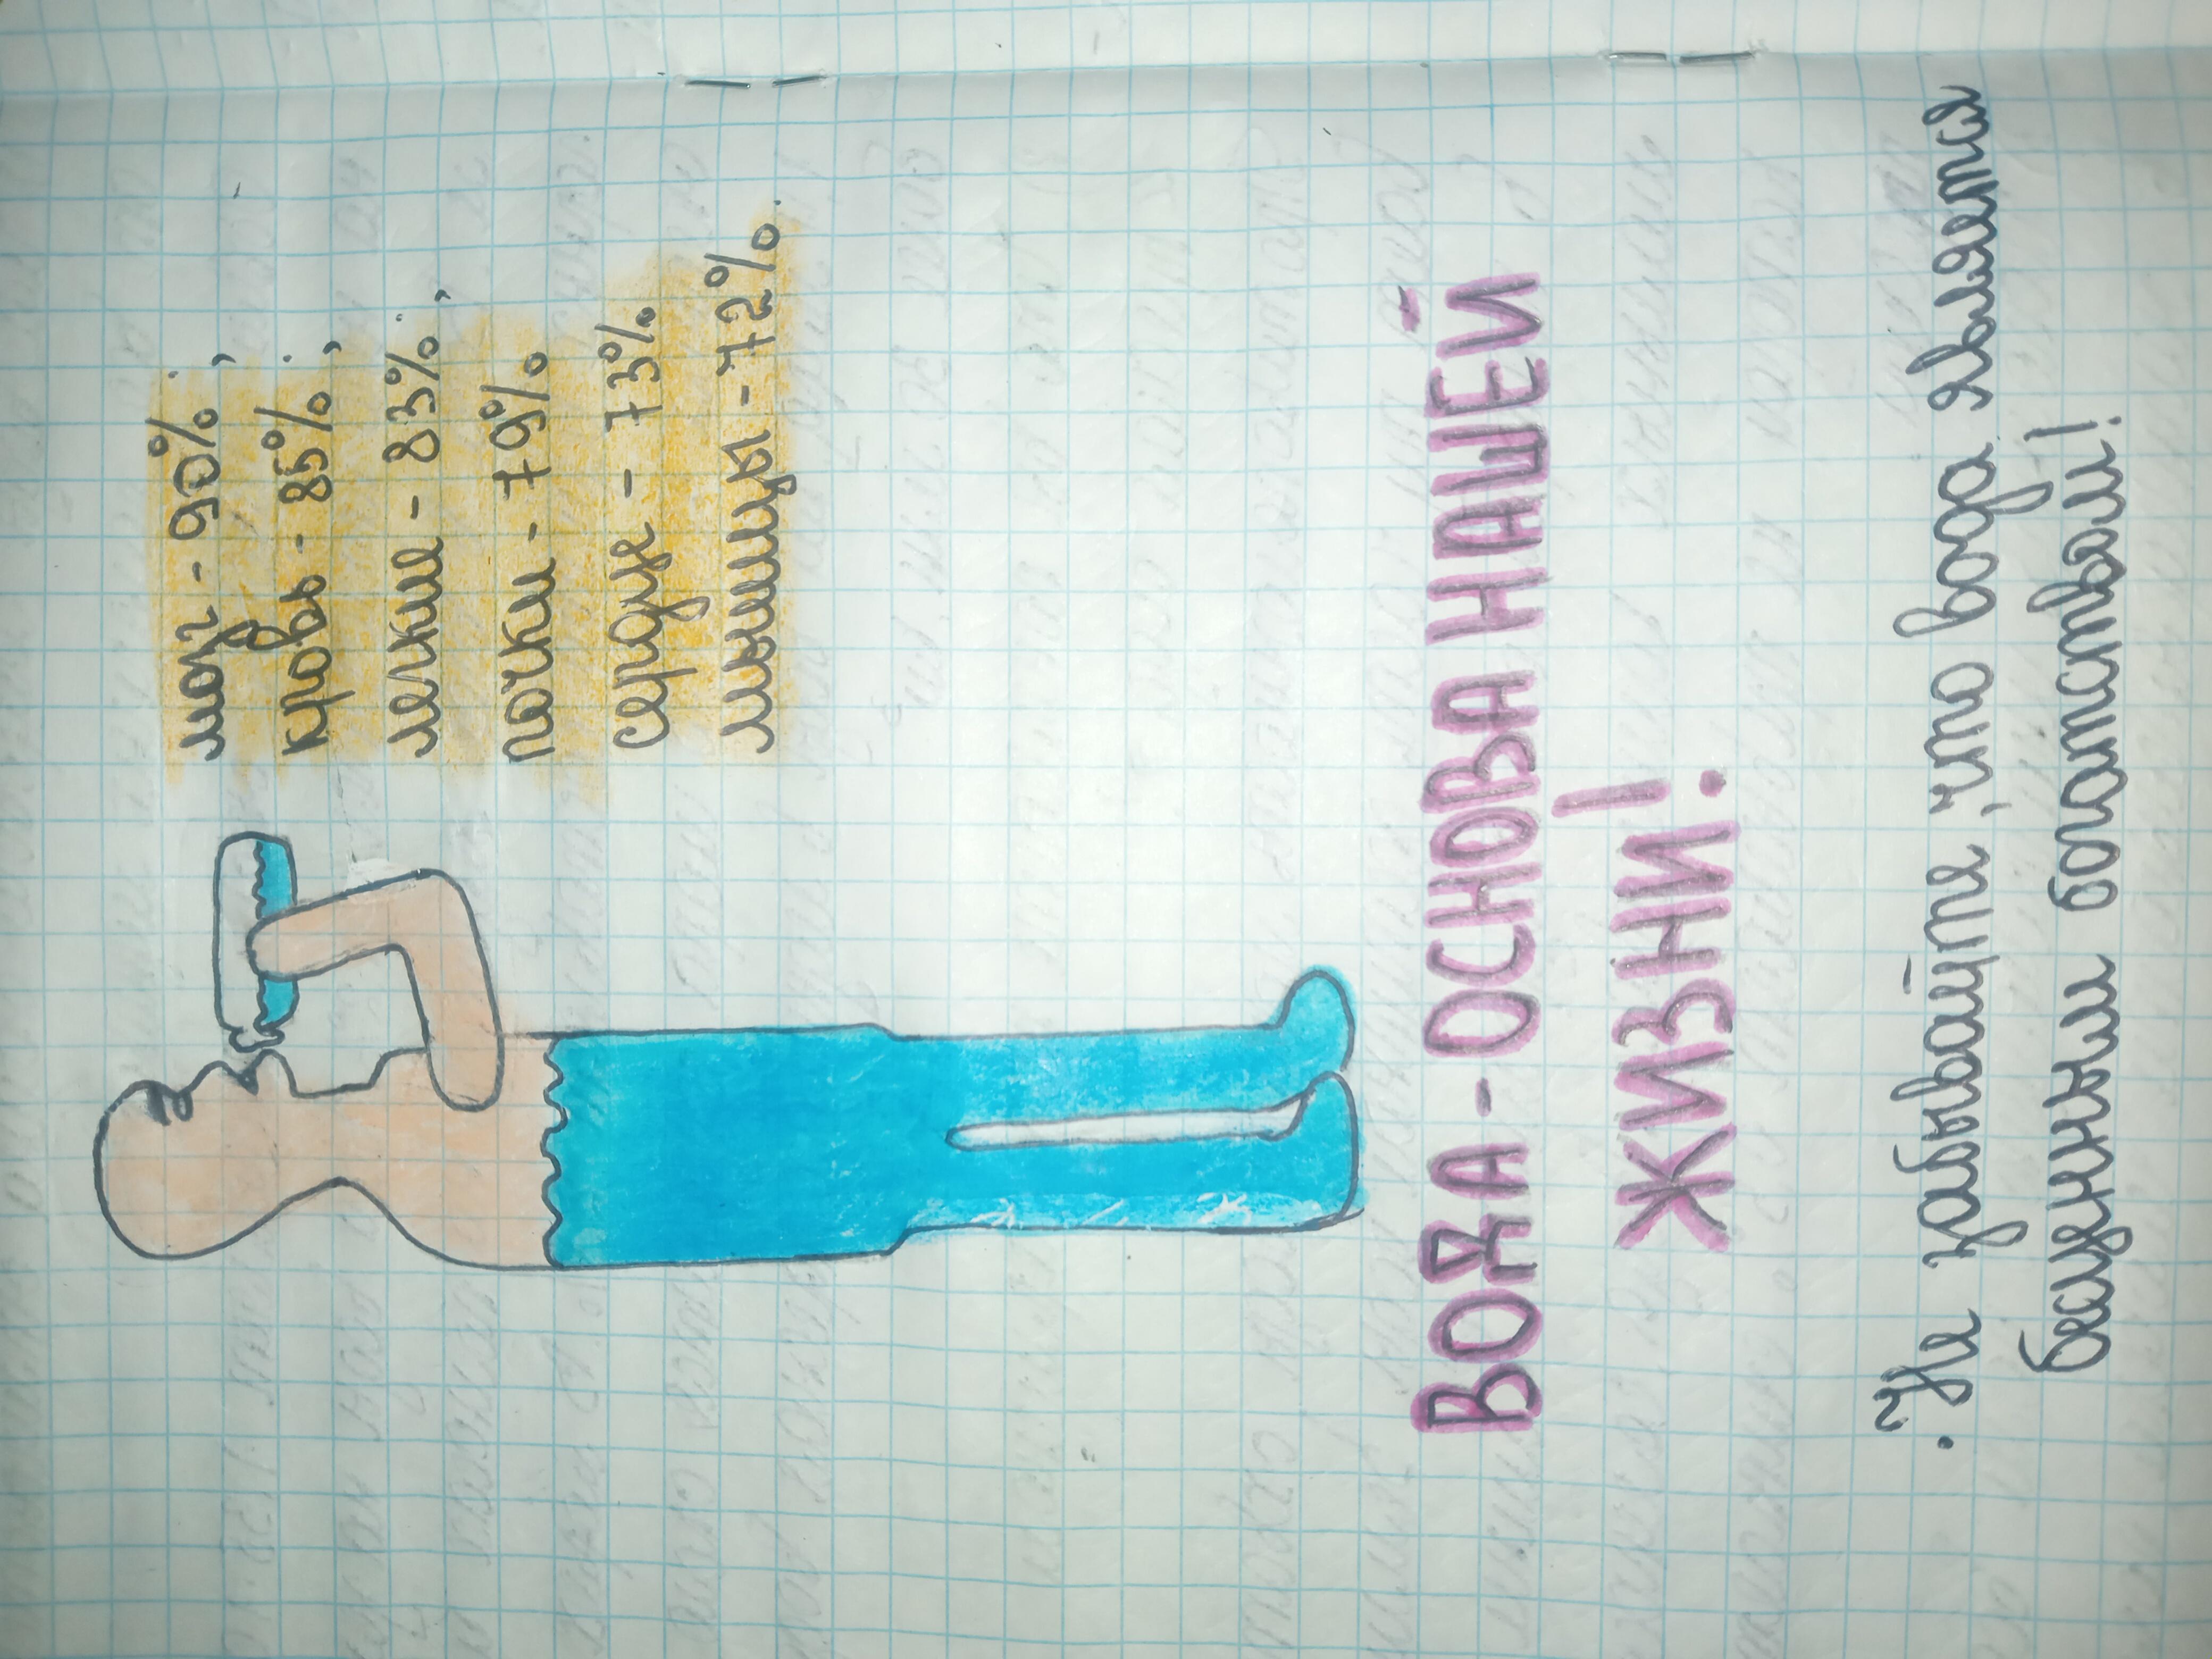 мозг - 90%;
кровь - 85%;
легкие - 83%;
почки - 79%
сердце - 73%
мышцы - 72%.
ВОДА - ОСНОВА НАШЕЙ
ЖИЗНИ!
Не забывайте, что вода является
бесценным богатством!